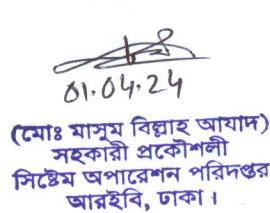 01.04.24
(মোঃ মাসুম বিল্লাহ আযাদ)
সহকারী প্রকৌশলী
সিষ্টেম অপারেশন পরিদপ্তর
আরইবি, ঢাকা।